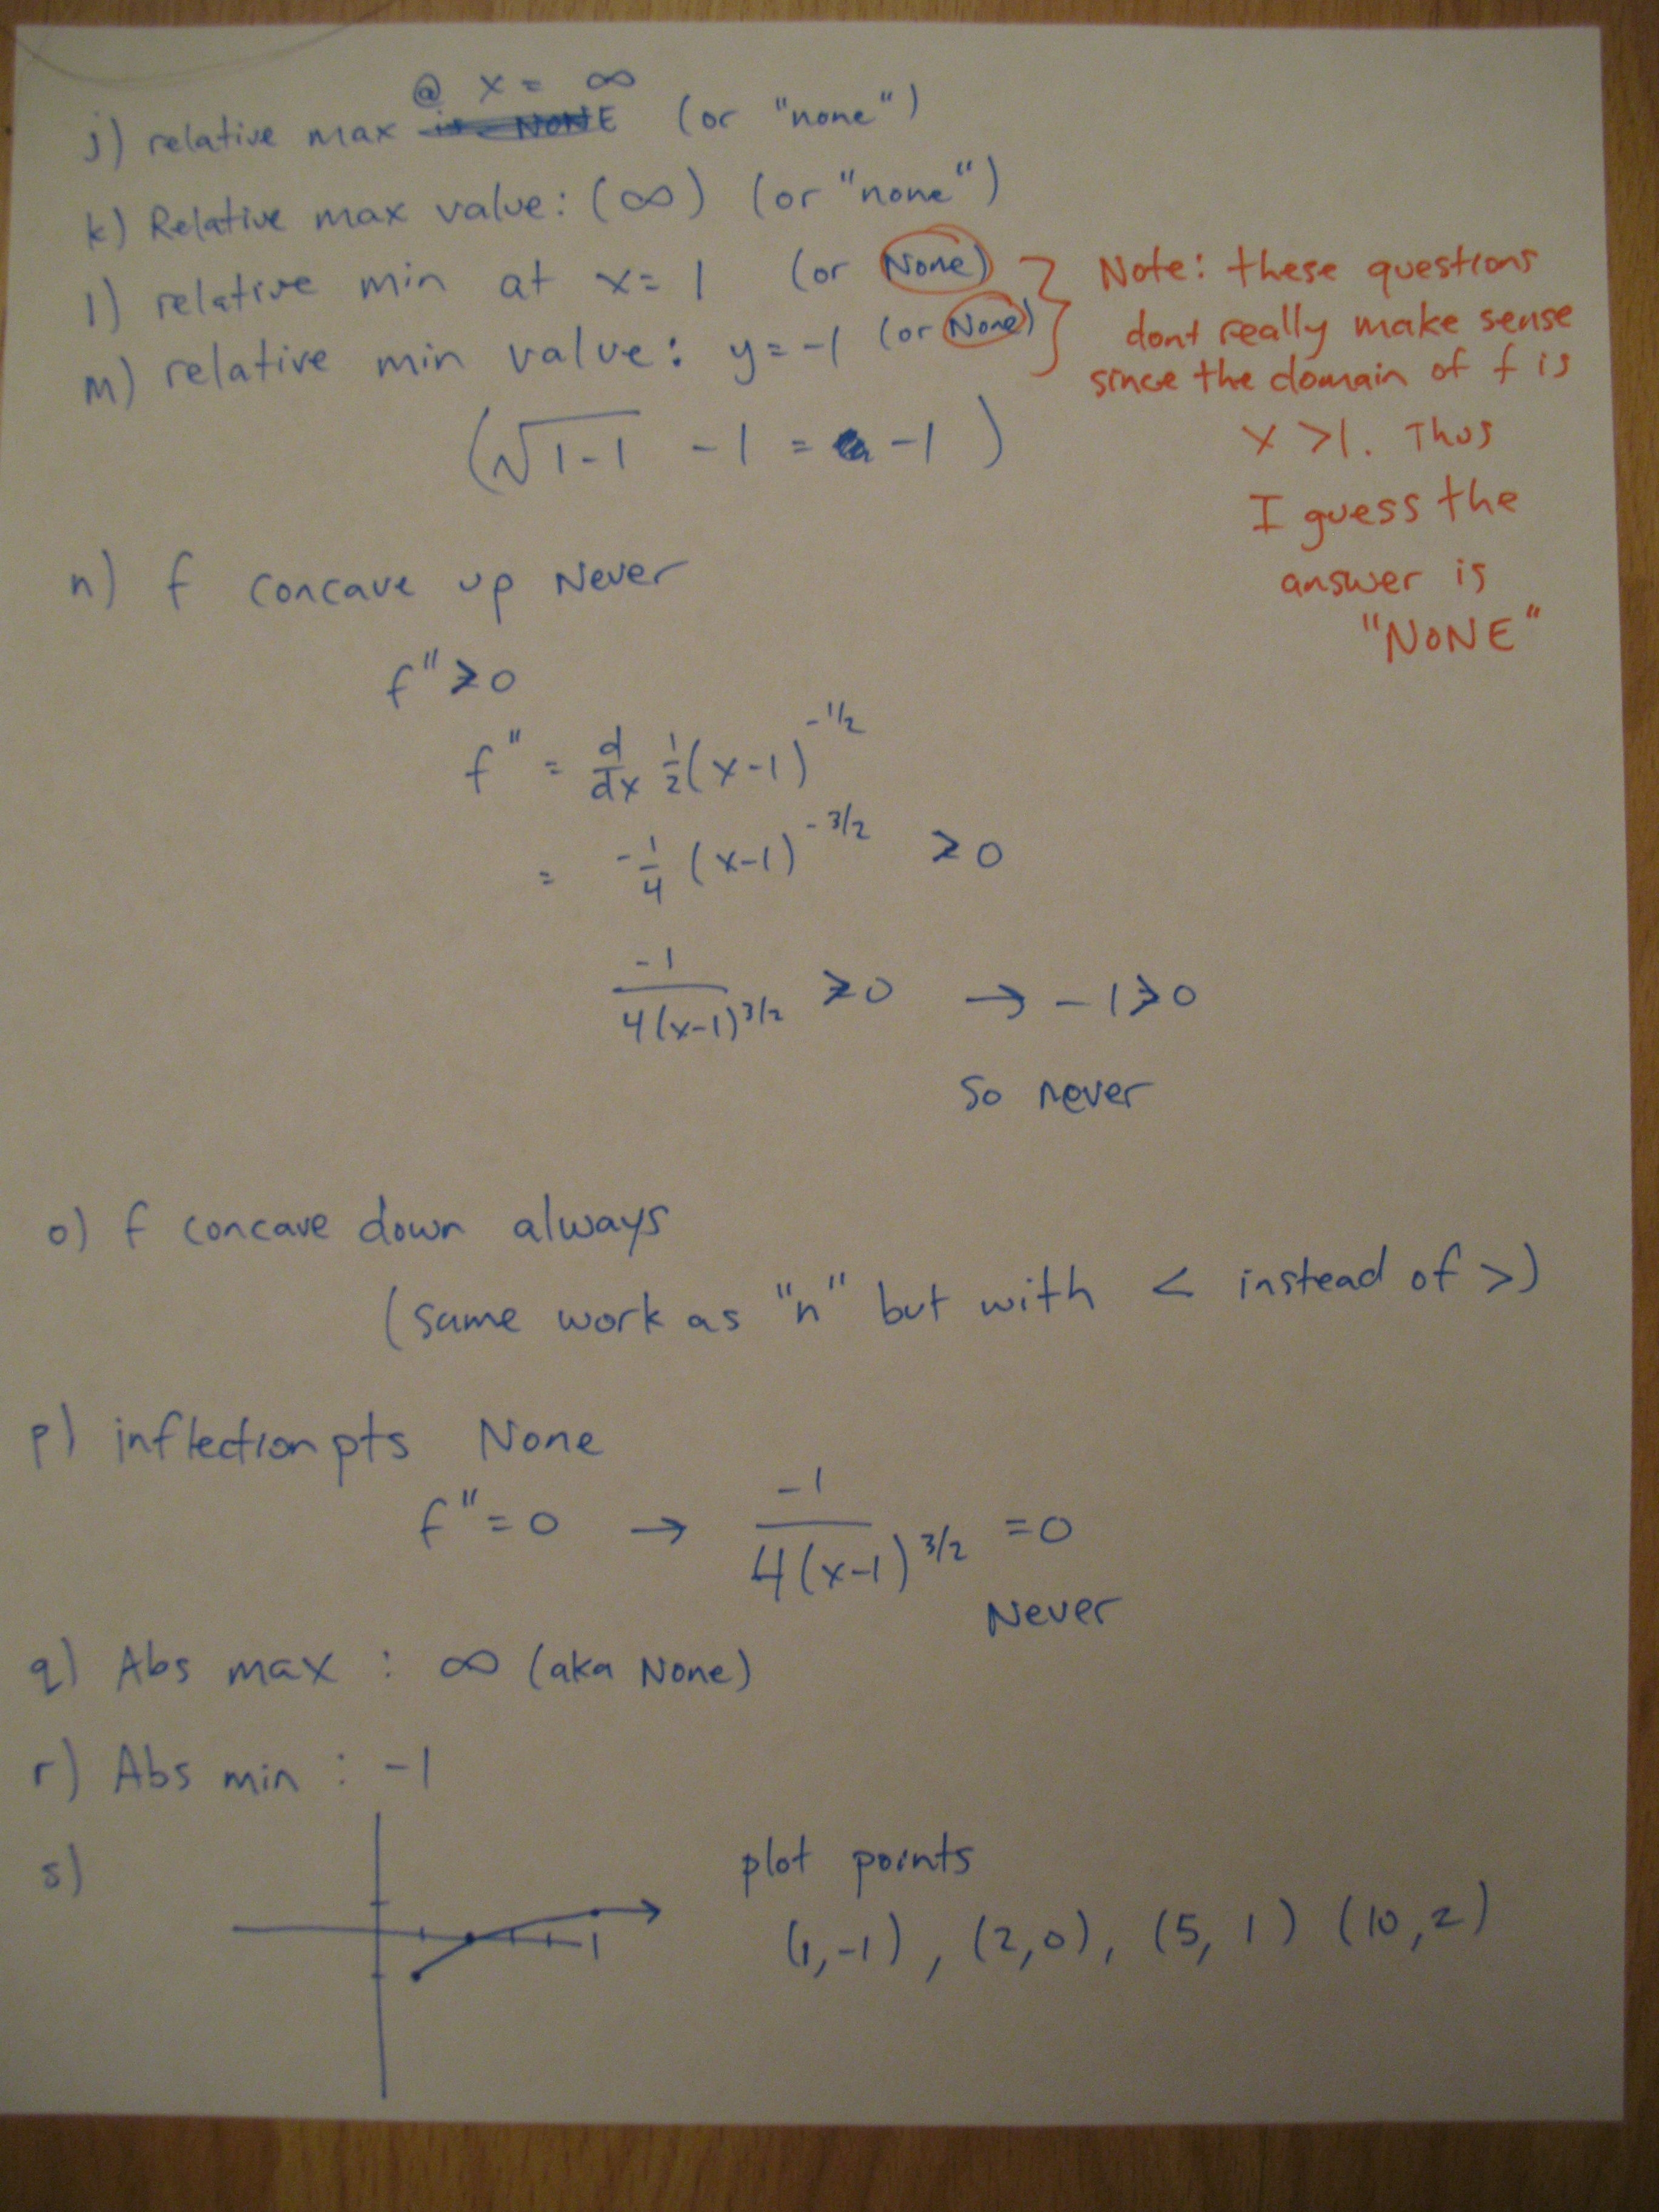 j) relative max @ x = ∞ (or "none")
k) Relative max value: (∞) (or "none")
l) relative min at x = 1 (or None)
m) relative min value: y = -1 (or None)
(√1-1 - 1 = -1)
Note: these questions
dont really make sense
since the domain of f is
x >1. Thus
I guess the
answer is
"NONE"
n) f concave up Never
f" ≥ 0
f" = d/dx 1/2 (x-1)^-1/2
= -1/4 (x-1)^-3/2 ≥ 0
-1/4(x-1)^3/2 ≥ 0 → -1 ≥ 0
So never
o) f concave down always
(same work as "n" but with < instead of >)
p) inflection pts None
f" = 0 → -1/4(x-1)^3/2 = 0
Never
q) Abs max : ∞ (aka None)
r) Abs min : -1
s)
plot points
(1,-1), (2,0), (5, 1) (10,2)